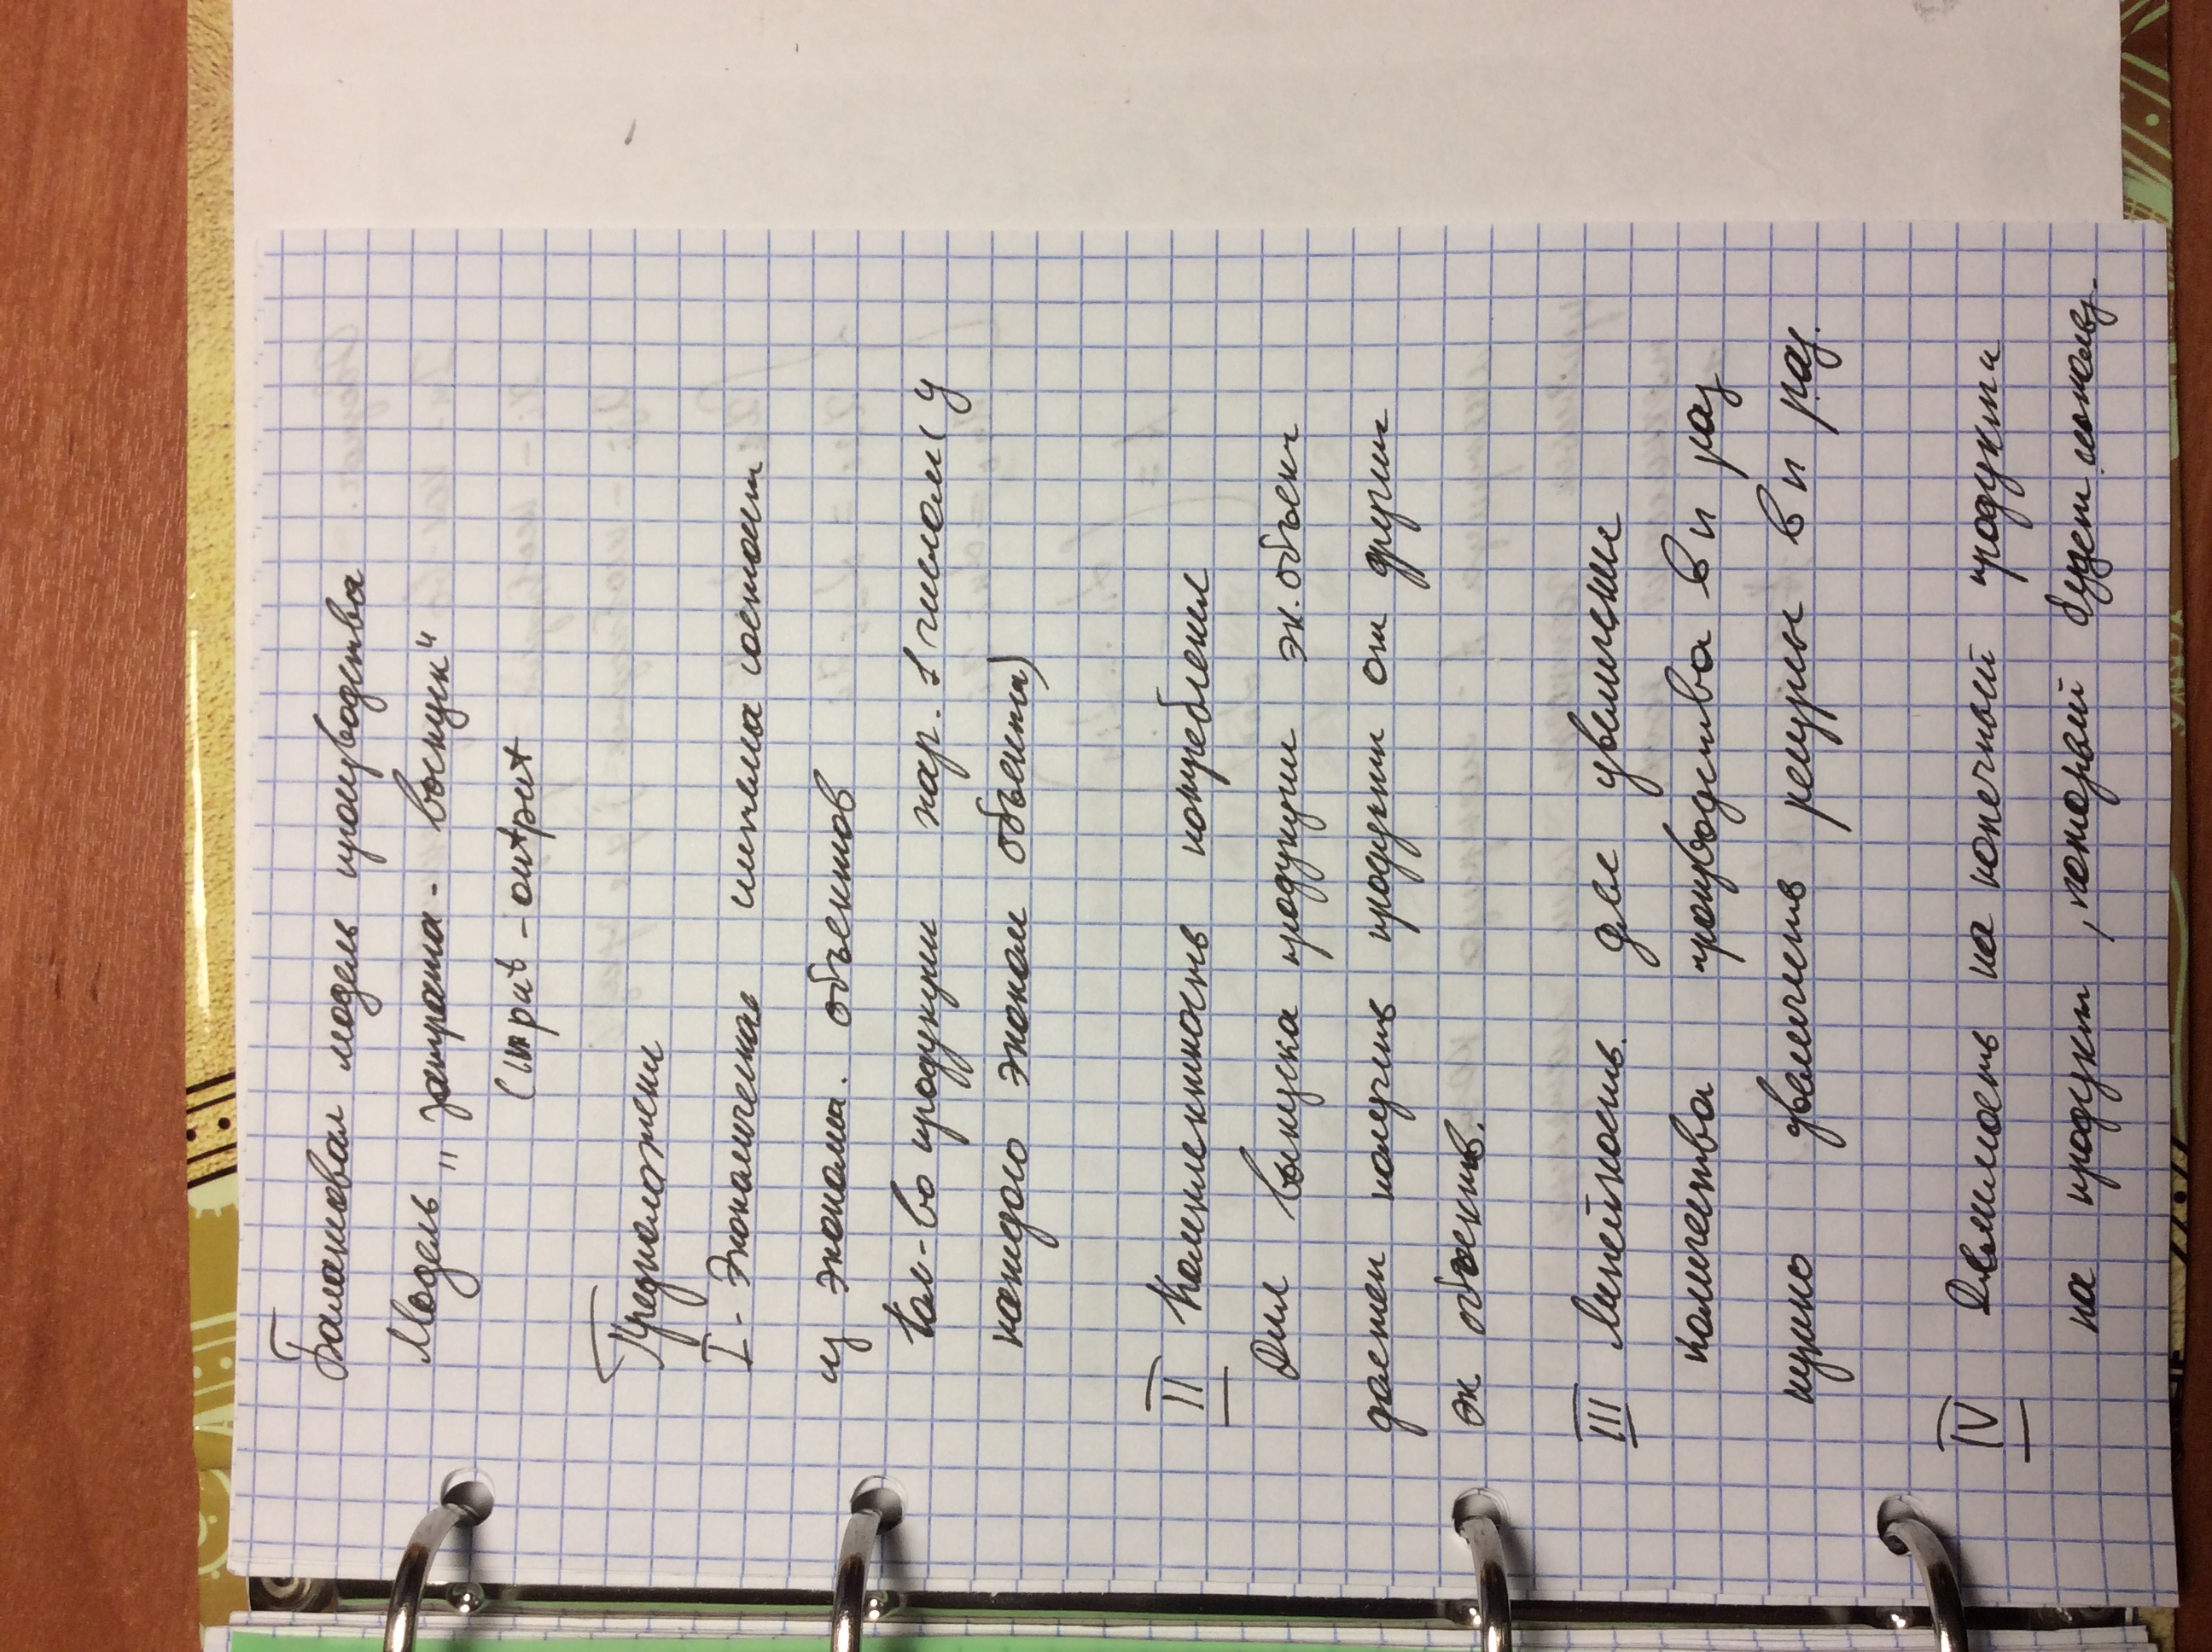 Балансовая модель производства
Модель „затрата - выпуск“
(input - output
Предположени
I - Экономическая система состоит
из эконом. объектов
Кол-во продукции хар. 1 числом (у
каждого эконом объекта)
II Комплектность потребления
Для выпуска продукции эк. объект
должен получить продукты от других
эк объектв.
III Линейность. для увеличение
количества производства в n раз
нужно увеличить ресурсы в n раз.
IV Делимость на конечный продукт и
на продукт, который будет использ.